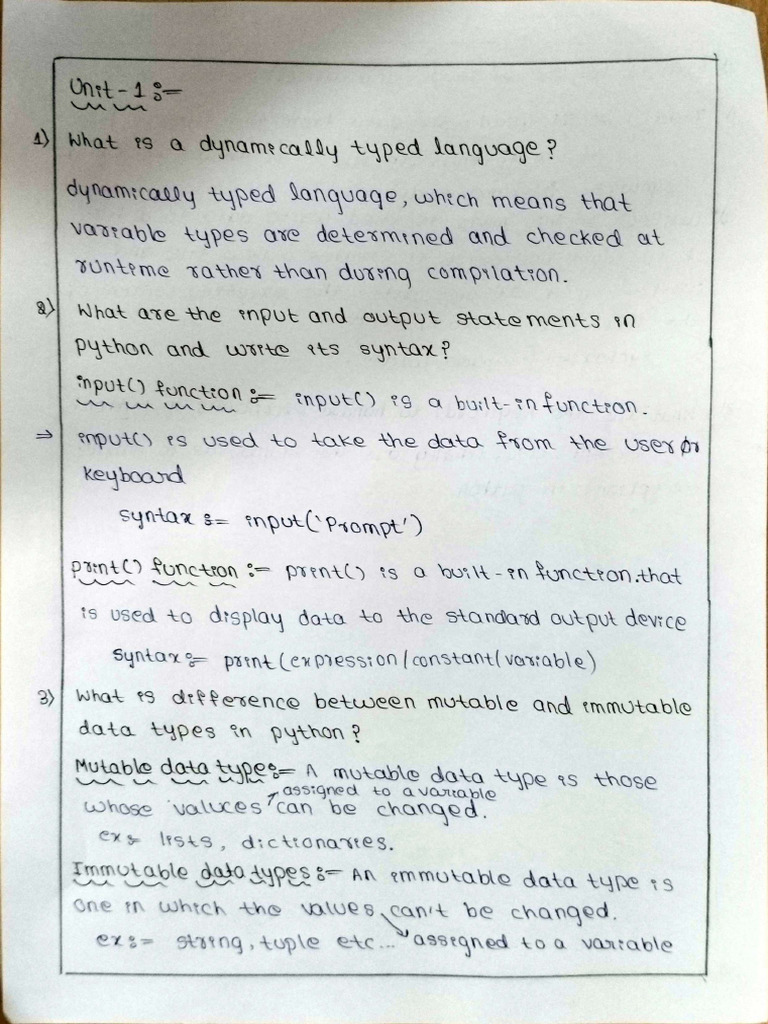 Unit-1:-
1) What is a dynamically typed language?
dynamically typed language, which means that
variable types are determined and checked at
runtime rather than during compilation.
2) What are the input and output statements in
python and write its syntax?
input() function :- input() is a built-in function.
⇒ input() is used to take the data from the user or
keyboard
syntax :- input('Prompt')
print() function :- print() is a built-in function.that
is used to display data to the standard output device
syntax:- print(expression/constant/variable)
3) What is difference between mutable and immutable
data types in python?
Mutable data types:- A mutable data type is those
assigned to a variable
whose valuces can be changed.
ex:- lists, dictionaries.
Immutable data types:- An immutable data type is
one in which the values can't be changed.
ex:- string, tuple etc... assigned to a variable